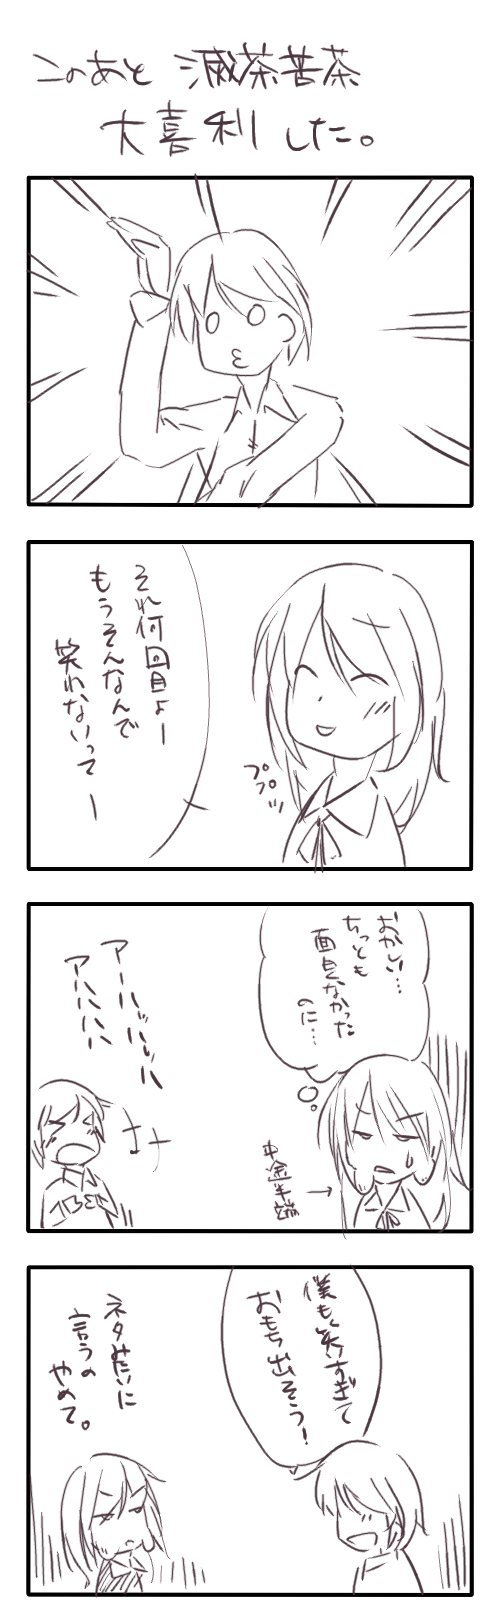 このあと 滅茶苦茶
大喜利した。
それ何回目よー
もうそんなんで
笑わないってー
プププッ
おかしい…
ちっとも
面白くなかった
のに…
アーハッハッハ
アハハハハ
中途半端
→
僕も笑いすぎて
おもち出そう！
ネタみたいに
言うの
やめて。